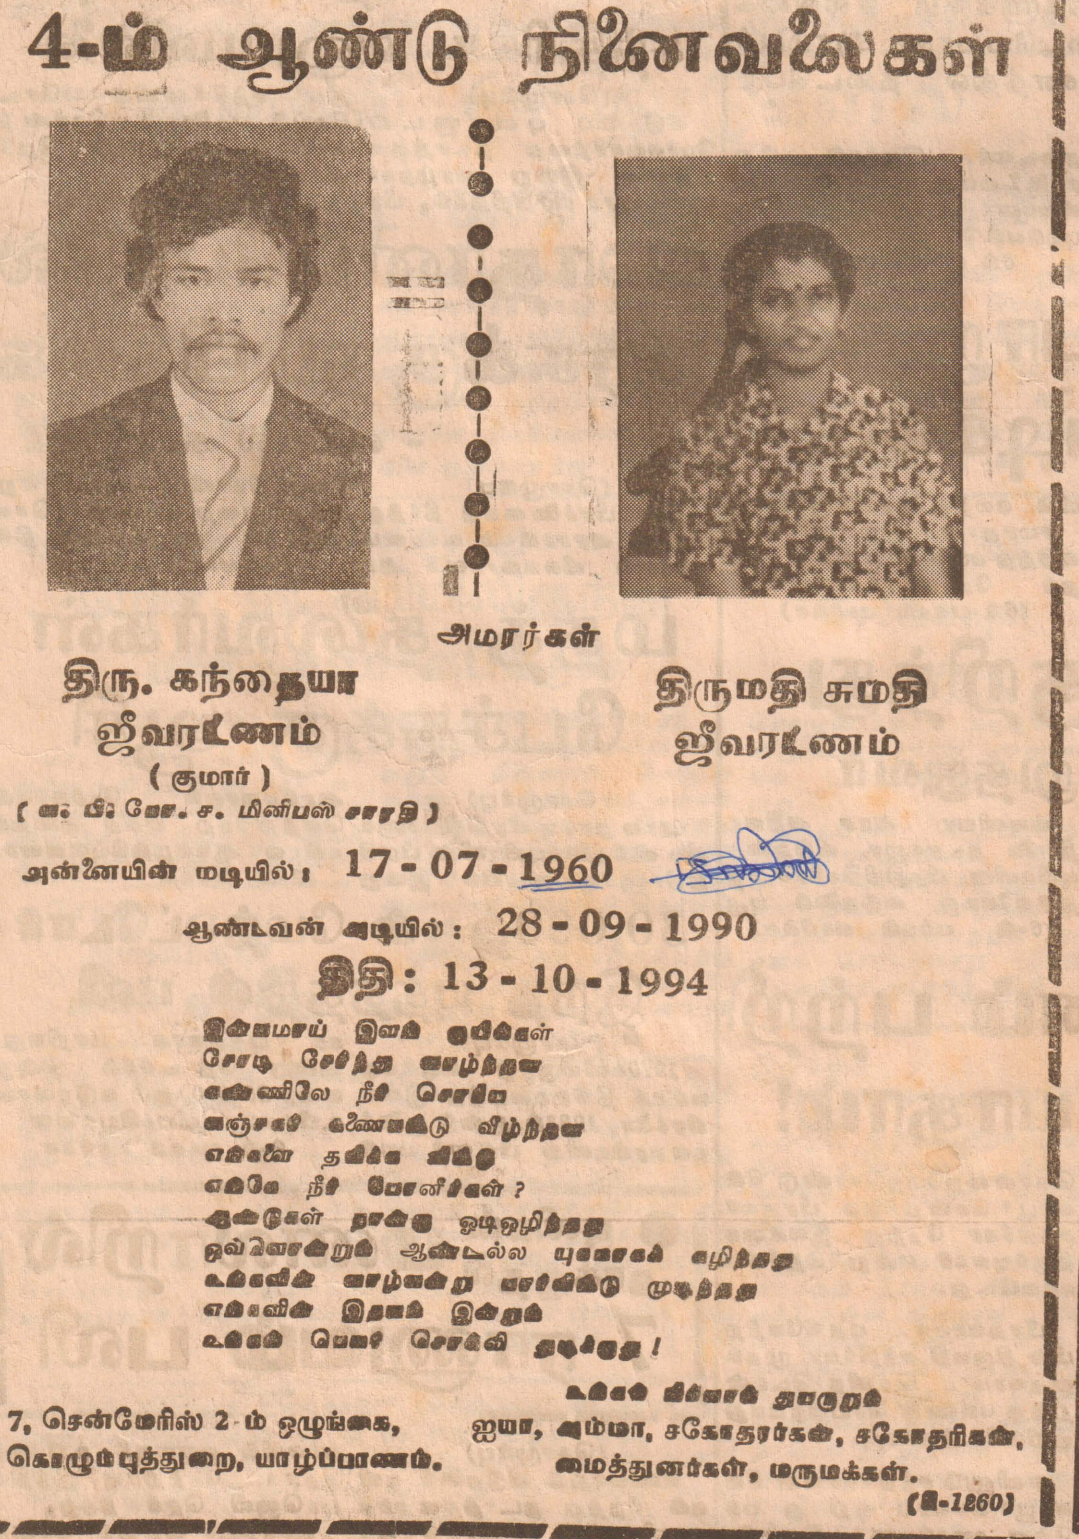 4-ம் ஆண்டு நினைவலைகள்
அமரர்கள்
திரு. கந்தையா
ஜீவரட்ணம்
( குமார் )
மினிபஸ் சாரதி )
திருமதி சுமதி
ஜீவரட்ணம்
அன்னையின் மடியில்: 17-07-1960
ஆண்டவன் அடியில்: 28-09-1990
திதி: 13-10-1994
இன்பமாய் இளங் குயில்கள்
சோடி சேர்ந்து வாழ்ந்தன
கண்ணிலே நீர் சொரிய
வஞ்சகர் கணைபட்டு வீழ்ந்தன
எங்களை தவிக்க விட்டு
எங்கே நீர் போனீர்கள்?
ஆண்டுகள் நான்கு ஓடிஒழிந்தது
ஒவ்வொன்றும் ஆண்டல்ல யுகமாகக் கழிந்தது
உங்களின் வாழ்வன்று முடிந்தது
எங்களின் இதயம் இன்றும்
உங்கள் பெயர் சொல்லி துடிக்குது!
உங்கள் பிரிவால் துயருறும்
ஐயா, அம்மா, சகோதரர்கள், சகோதரிகள்,
மைத்துனர்கள், மருமக்கள்.
7, சென்மேரிஸ் 2-ம் ஒழுங்கை,
கொழும்புத்துறை, யாழ்ப்பாணம்.